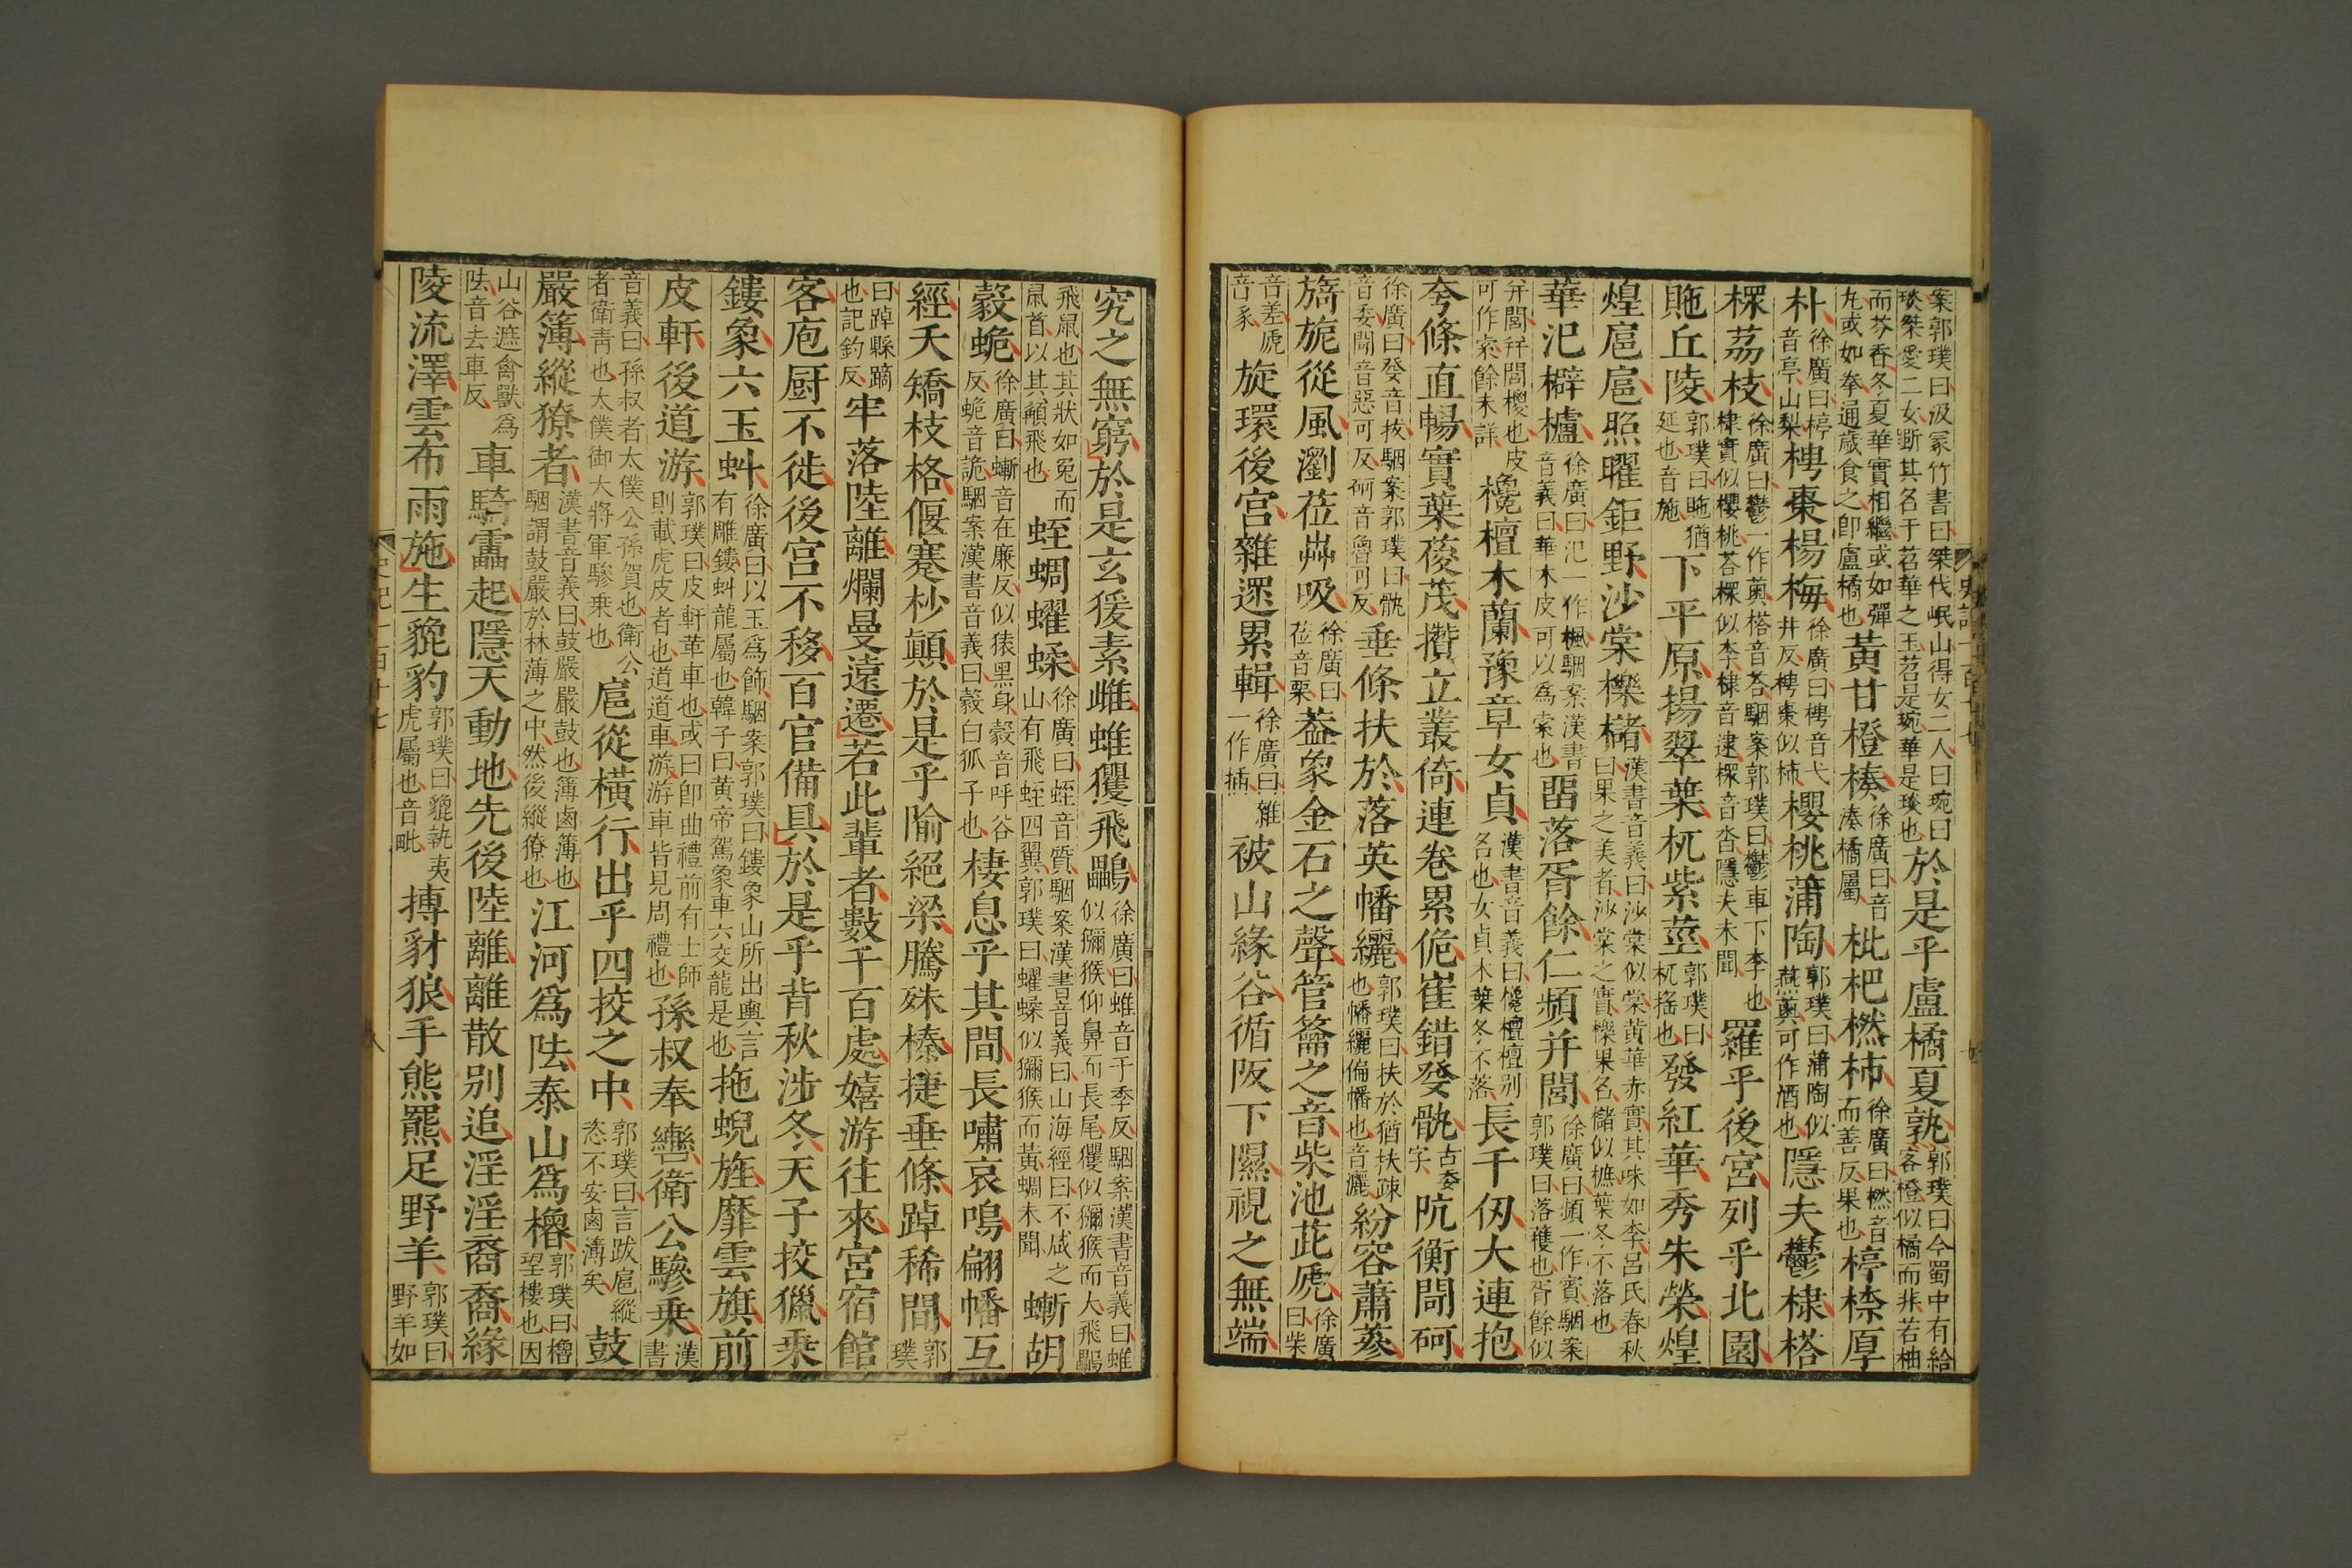 案郭璞曰汲冢竹書曰桀伐岷山得女二人曰琬曰琰桀愛二女斲其名于苕華之玉苕是琬華是琰也於是乎盧橘夏孰郭璞曰今蜀中有給客橙似橘而非若柚
而芬香冬夏華實相繼或如彈丸或如拳通歲食之卽盧橘也黃甘橙楱徐廣曰音湊橘屬枇杷橪柿徐廣曰橪音而善反果也楟㮈厚
朴徐廣曰楟音亭山梨梬棗楊梅徐廣曰梬音弋井反梬棗似柿櫻桃蒲陶郭璞曰蒲陶似燕薁可作酒也隱夫鬱棣榙
㯯荔枝徐廣曰鬱一作薁榙音荅駰案郭璞曰鬱車下李也棣實似櫻桃荅㯯似李棣音逮㯯音沓隱夫未聞羅乎後宮列乎北園
貤丘陵郭璞曰貤猶延也音施下平原揚翠葉杌紫莖郭璞曰杌搖也發紅華秀朱榮煌
煌扈扈照曜鉅野沙棠櫟櫧漢書音義曰沙棠似棠黃華赤實其味如李呂氏春秋曰果之美者沙棠之實櫟果名櫧似樵葉冬不落也
華汜檘櫨徐廣曰汜一作楓駰案漢書音義曰華木皮可以為索也畱落胥餘仁頻并閭徐廣曰頻一作賓駰案郭璞曰落穫也胥餘似
并閭幷閭㯶也皮可作索餘未詳欃檀木蘭豫章女貞漢書音義曰欃檀檀別名也女貞木葉冬不落長千仞大連抱
夸條直暢實葉葰茂攢立叢倚連卷累佹崔錯癹骫古委字阬衡閜砢
徐廣曰癹音拔駰案郭璞曰骫音委閜音惡可反砢音魯可反垂條扶於落英幡纚郭璞曰扶於猶扶疎也幡纚偏幡也音灑紛容蕭蔘
旖旎從風瀏莅芔吸徐廣曰莅音栗葢象金石之聲管籥之音柴池茈虒徐廣曰柴
音差虒音豸旋環後宮雜遝累輯徐廣曰雜一作插被山緣谷循阪下隰視之無端
究之無窮於是玄猨素雌蜼玃飛鸓徐廣曰蜼音于季反駰案漢書音義曰蜼似獼猴仰鼻而長尾玃似獼猴而大飛鸓
飛鼠也其狀如兔而鼠首以其髯飛也蛭蜩蠗蝚徐廣曰蛭音質駰案漢書音義曰山海經曰不咸之山有飛蛭四翼郭璞曰蠗蝚似獼猴而黃蜩未聞螹胡
縠蛫徐廣曰螹音在廉反似猿黑身縠音呼谷反蛫音詭駰案漢書音義曰縠白狐子也棲息乎其間長嘯哀鳴翩幡互
經夭矯枝格偃蹇杪顛於是乎隃絕梁騰殊榛捷垂條踔稀間郭璞
曰踔縣蹢也記釣反牢落陸離爛曼遠遷若此輩者數千百處嬉游往來宮宿館
客庖厨不徙後宮不移百官備具於是乎背秋涉冬天子挍獵乗
鏤象六玉虯徐廣曰以玉為飾駰案郭璞曰鏤象山所出輿言有雕鏤虯龍屬也韓子曰黃帝駕象車六交龍是也拖蜺旌靡雲旗前
皮軒後道游郭璞曰皮軒革車也或曰卽曲禮前有士師則載虎皮者也道道車游游車皆見周禮也孫叔奉轡衛公驂乗漢書
音義曰孫叔者太僕公孫賀也衛公者衛青也太僕御大將軍驂乗也扈從橫行出乎四挍之中郭璞曰言跋扈縱恣不安鹵簿矣鼓
嚴簿縱獠者漢書音義曰鼓嚴嚴鼓也簿鹵簿也駰謂鼓嚴於林薄之中然後縱獠也江河爲阹泰山爲櫓郭璞曰櫓望樓也因
山谷遮禽獸爲阹音去車反車騎靁起隱天動地先後陸離離散別追淫淫裔裔緣
陵流澤雲布雨施生貔豹郭璞曰貔執夷虎屬也音毗搏豺狼手熊羆足野羊郭璞曰野羊如
史記一百十七
八